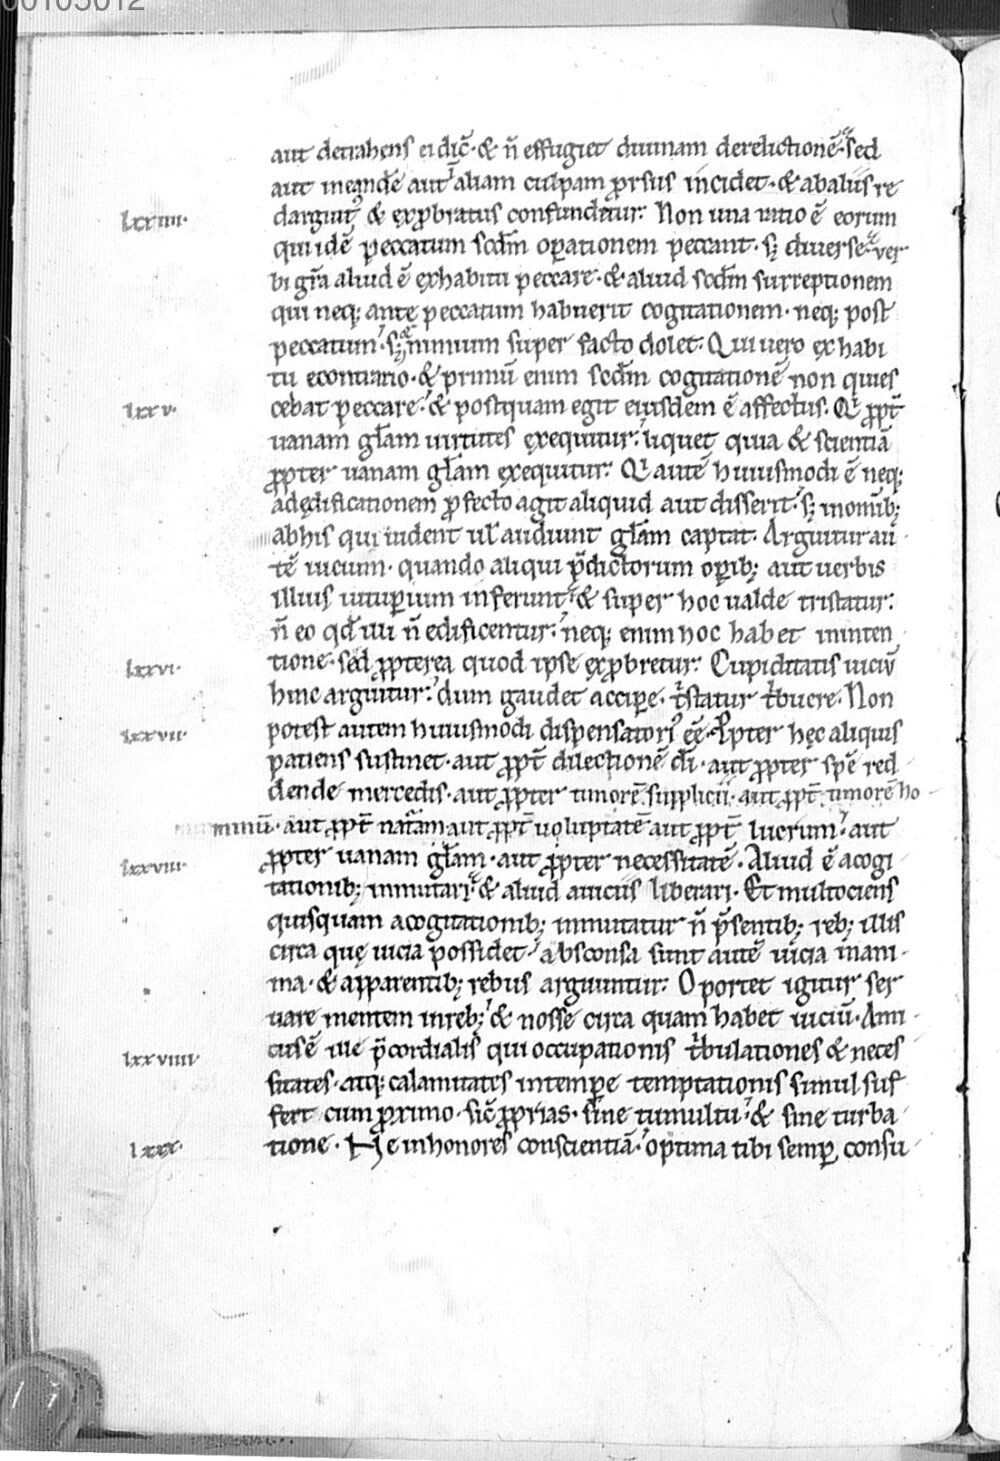 00105012
aut detrahens ei dic̄· & n̄ effugiet diuinam derelictionē· sed
aut ineandē aut aliam culpam ꝓrsus incidet· & abaliis re
lxxiiii· darguit᷑ & exꝓbratus confunditur: Non una ratio ē eorum
qui idē peccatum scdm̄ oꝑationem peccant· sꝫ diuerse· ver
bi gr̄a aliud ē exhabitu peccare· & aliud scdm̄ surreptionem
qui neq; ante peccatum habuerit cogitationem· neq; post
peccatum· sꝫ nimium super facto dolet· Qui uero ex habi
tu econtrario· & primū enim scdm̄ cogitationē non quies
lxxv· cebat peccare· & postquam egit eiusdem ē affectus· Qi ꝓpt̄
uanam gl̄am uirtutes exequitur: liquet quia & scientiā
ꝓpter uanam gl̄am exequitur: Qi autē huiusmodi ē neq;
adędificationem ꝓfecto agit aliquid aut disserit· sꝫ inomīb;
abhis qui uident ul̄ audiunt gl̄am captat· Arguitur au
tē uicium· quando aliqui p̄dictorum oꝑib; aut uerbis
illius uituꝑium inferunt· & super hoc ualde tristatur:
n̄ eo qd̄ illi n̄ edificentur: neq; enim hoc habet ininten
lxxvi· tione· sed ꝓpterea quod ipse exꝓbretur: Cupiditatis uiciū
hinc arguitur: dum gaudet acciꝑe· tⁱstatur tⁱbuere· Non
lxxvii· potest autem huiusmodi dispensatori᷒ eē· Ꝓpter hęc aliquis
patiens sustinet· aut ꝓpt̄ dilectionē dī· aut ꝓpter spē red
dende mercedis· aut ꝓpter timorē supplicii· aut ꝓpt̄ timorē ho
minū· aut ꝓpt̄ natr̄am aut ꝓpt̄ uoluptatē aut ꝓpt̄ lucrum· aut
lxxviii· ꝓpter uanam gl̄am· aut ꝓpter necessitatē· Aliud ē acogi
tationib; inmutari· & aliud auiciis liberari· Et multociens
quisquam acogitationib; inmutatur n̄ p̄sentib; reb; illis
circa quę uicia possidet· absconsa sunt autē uicia inani
ma· & apparentib; rebus arguuntur: Oportet igitur ser
uare mentem inreb; & nosse circa quam habet uiciū· Ami
lxxviiii· cus ē ille p̄cordialis qui occupationis tⁱbulationes & neces
sitates· atq; calamitates intemꝑe temptationis simul suf
fert cum ꝓximo· sic̄ ꝓprias· sine tumultu· & sine turba
lxxx· tione· Ne inhonores conscientiā· optima tibi semꝑ consu